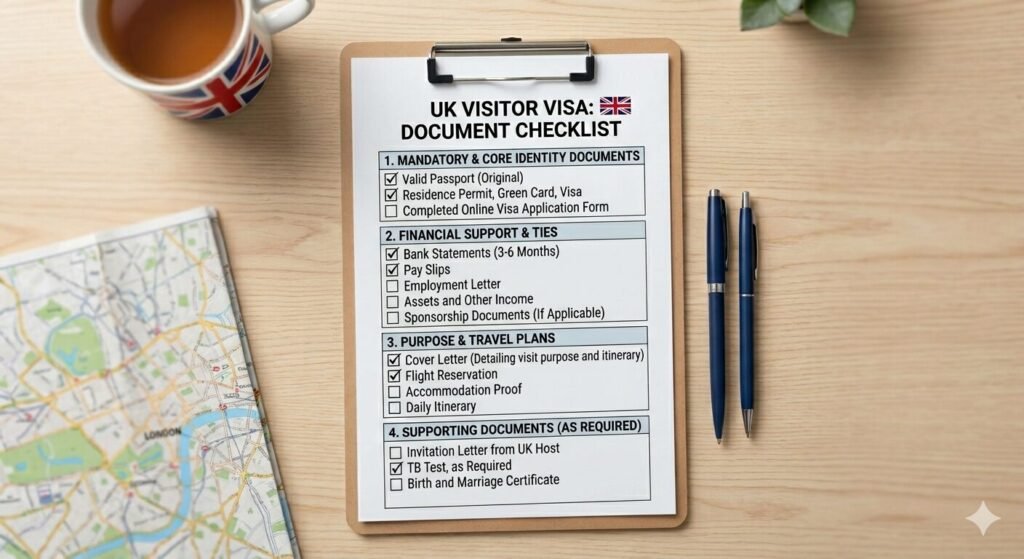 UK VISITOR VISA:
DOCUMENT CHECKLIST
1. MANDATORY & CORE IDENTITY DOCUMENTS
Valid Passport (Original)
Residence Permit, Green Card, Visa
Completed Online Visa Application Form
2. FINANCIAL SUPPORT & TIES
Bank Statements (3-6 Months)
Pay Slips
Employment Letter
Assets and Other Income
Sponsorship Documents (If Applicable)
3. PURPOSE & TRAVEL PLANS
Cover Letter (Detailing visit purpose and itinerary)
Flight Reservation
Accommodation Proof
Daily Itinerary
4. SUPPORTING DOCUMENTS (AS REQUIRED)
Invitation Letter from UK Host
TB Test, as Required
Birth and Marriage Certificate